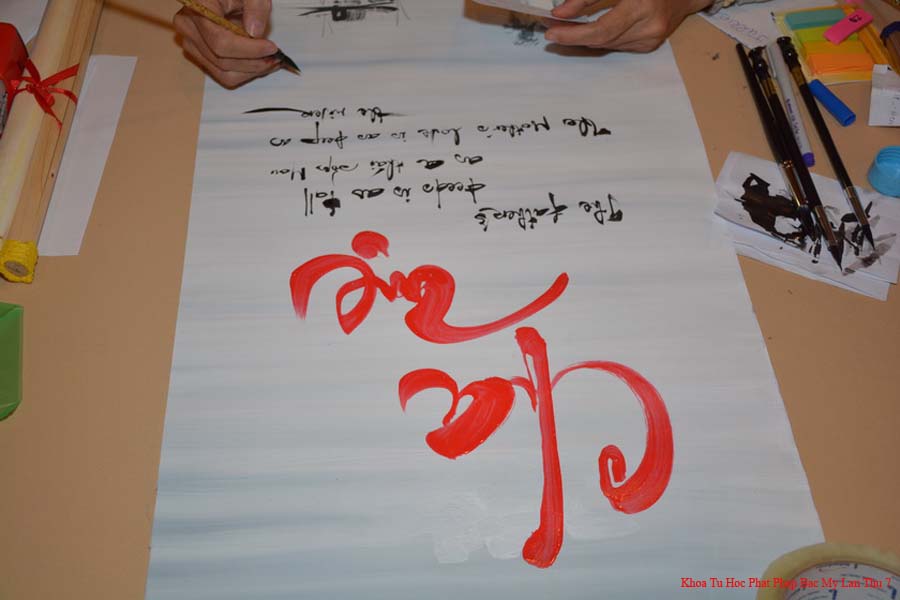 Cha
Mẹ
The father's
deeds is as tall
as a thái sơn Mou
The Mother's love is as deep as
the river
Khoa Tu Hoc Phat Phap Bac My Lan Thu 7